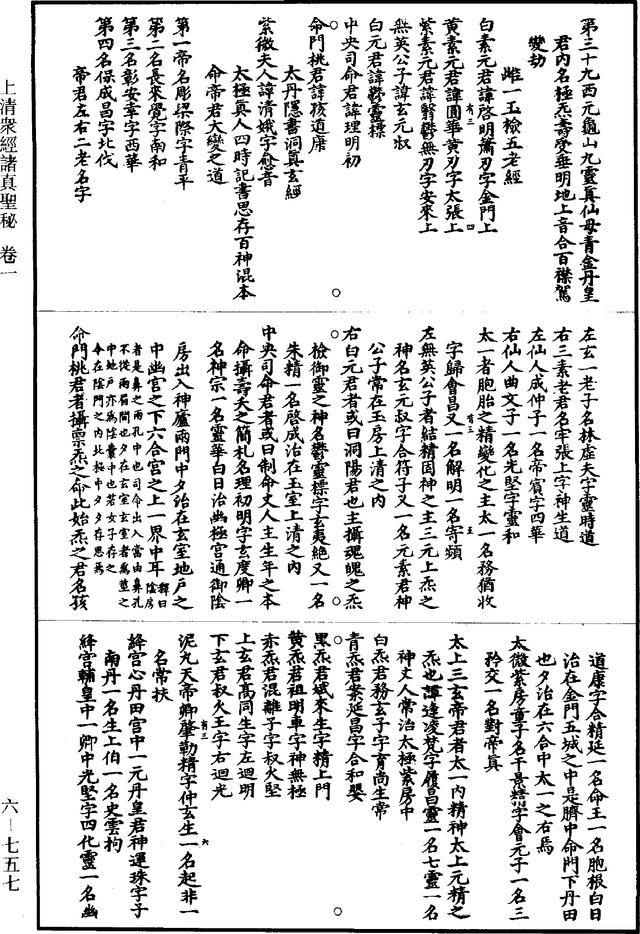 第三十九西元龜山九靈真仙母青金丹皇
君內名極炁壽受垂明地上音合百襟駕
變劫
雌一玉檢五老經
白素元君諱啓明蕭刃字金門上
有三
黄素元君諱圓華黄刃字太張上
四
紫素元君諱翳鬱無刃字安來上
無英公子諱玄元叔
白元君諱鬱靈標
中央司命君諱理明初
命門桃君諱孩道康
太丹隱書洞真玄經
紫微夫人諱清娥字愈音
太極真人四時記書思存百神混本
命帝君大變之道
第一帝名彫梁際字青平
第二名長來覺字南和
第三名彰安幸字西華
第四名保成昌字北伐
帝君左右二老名字
左玄一老子名林虛夫字靈時道
右三素老君名牢張上字神生道
左仙人成仲子一名帝賓字四華
右仙人曲文子一名光堅字靈和
太一者胞胎之精變化之主太一名務猶收
有三
字歸會昌又一名解明一名寄頻
左無英公子者結精固神之主三元上炁之
神名玄元叔字合符子又一名元素君神
公子常在玉房上清之內
右白元君者或曰洞陽君也主攝魂魄之炁
檢御靈之神名鬱靈標字玄夷絶又一名
朱精一名啓成治在玉室上清之內
中央司命君者或曰制命丈人主生年之本
命攝壽夭之簡札名理明初字玄度卿一
名神宗一名靈華白日治幽極宮通御陰
房出入神廬兩門中夕治在玄室地戶之
中幽宮之下六合宮之上一界中耳
釋曰陰房
者是鼻之兩孔中也司命出入當由鼻孔
不從兩眉間也夕在玄室玄室者爲莖之
中地戶亦爲陰囊中也若女子存之
令在陰門之內北極中夕夕存思焉
命門桃君者攝稟炁之命此始炁之君名孩
道康字合精延一名命王一名胞根白日
治在金門五城之中是臍中命門下丹田
也夕治在六合中太一之右焉
太微紫房童子名干景精字會元子一名三
矜交一名對帝真
太上三玄帝君者太一內精神太上元精之
炁也諱逢淩梵字履昌靈一名七靈一名
神丈人常治太極紫房中
白炁君務玄子字育尚生常
青炁君案延昌字合和嬰
黑炁君斌來生字精上門
黄炁君祖明車字神無極
赤炁君混離子字叔火堅
上玄君高同生字左迴明
下玄君叔火王字右迴光
有三
泥丸天帝卿肇勒精字仲玄生一名起非一
六
名常扶
絳宮心丹田宮中一元丹皇君神運珠字子
南丹一名生上伯一名史雲拘
絳宮輔皇中一卿中光堅字四化靈一名幽
上清衆經諸真聖秘　卷一
六－七五七